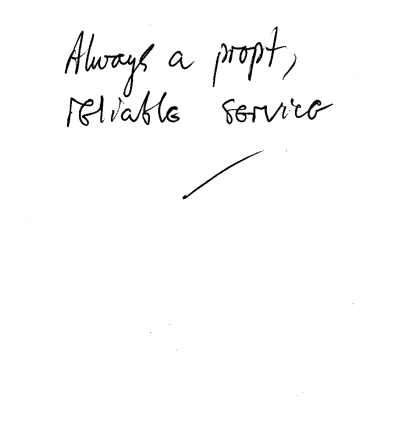 Always a propt,
reliable service